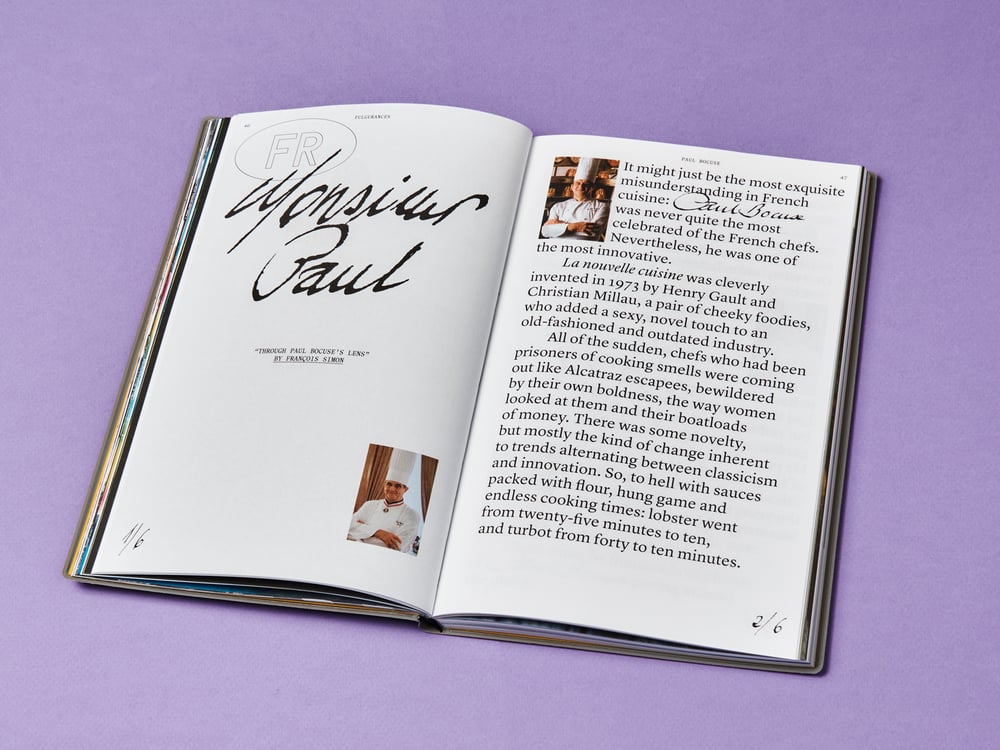 46
FULGURANCES
FR
Monsieur
Paul
"THROUGH PAUL BOCUSE'S LENS"
BY FRANÇOIS SIMON
1/6
PAUL BOCUSE
47
It might just be the most exquisite
misunderstanding in French
cuisine: Paul Bocuse
was never quite the most
celebrated of the French chefs.
Nevertheless, he was one of
the most innovative.
La nouvelle cuisine was cleverly
invented in 1973 by Henry Gault and
Christian Millau, a pair of cheeky foodies,
who added a sexy, novel touch to an
old-fashioned and outdated industry.
All of the sudden, chefs who had been
prisoners of cooking smells were coming
out like Alcatraz escapees, bewildered
by their own boldness, the way women
looked at them and their boatloads
of money. There was some novelty,
but mostly the kind of change inherent
to trends alternating between classicism
and innovation. So, to hell with sauces
packed with flour, hung game and
endless cooking times: lobster went
from twenty-five minutes to ten,
and turbot from forty to ten minutes.
2/6